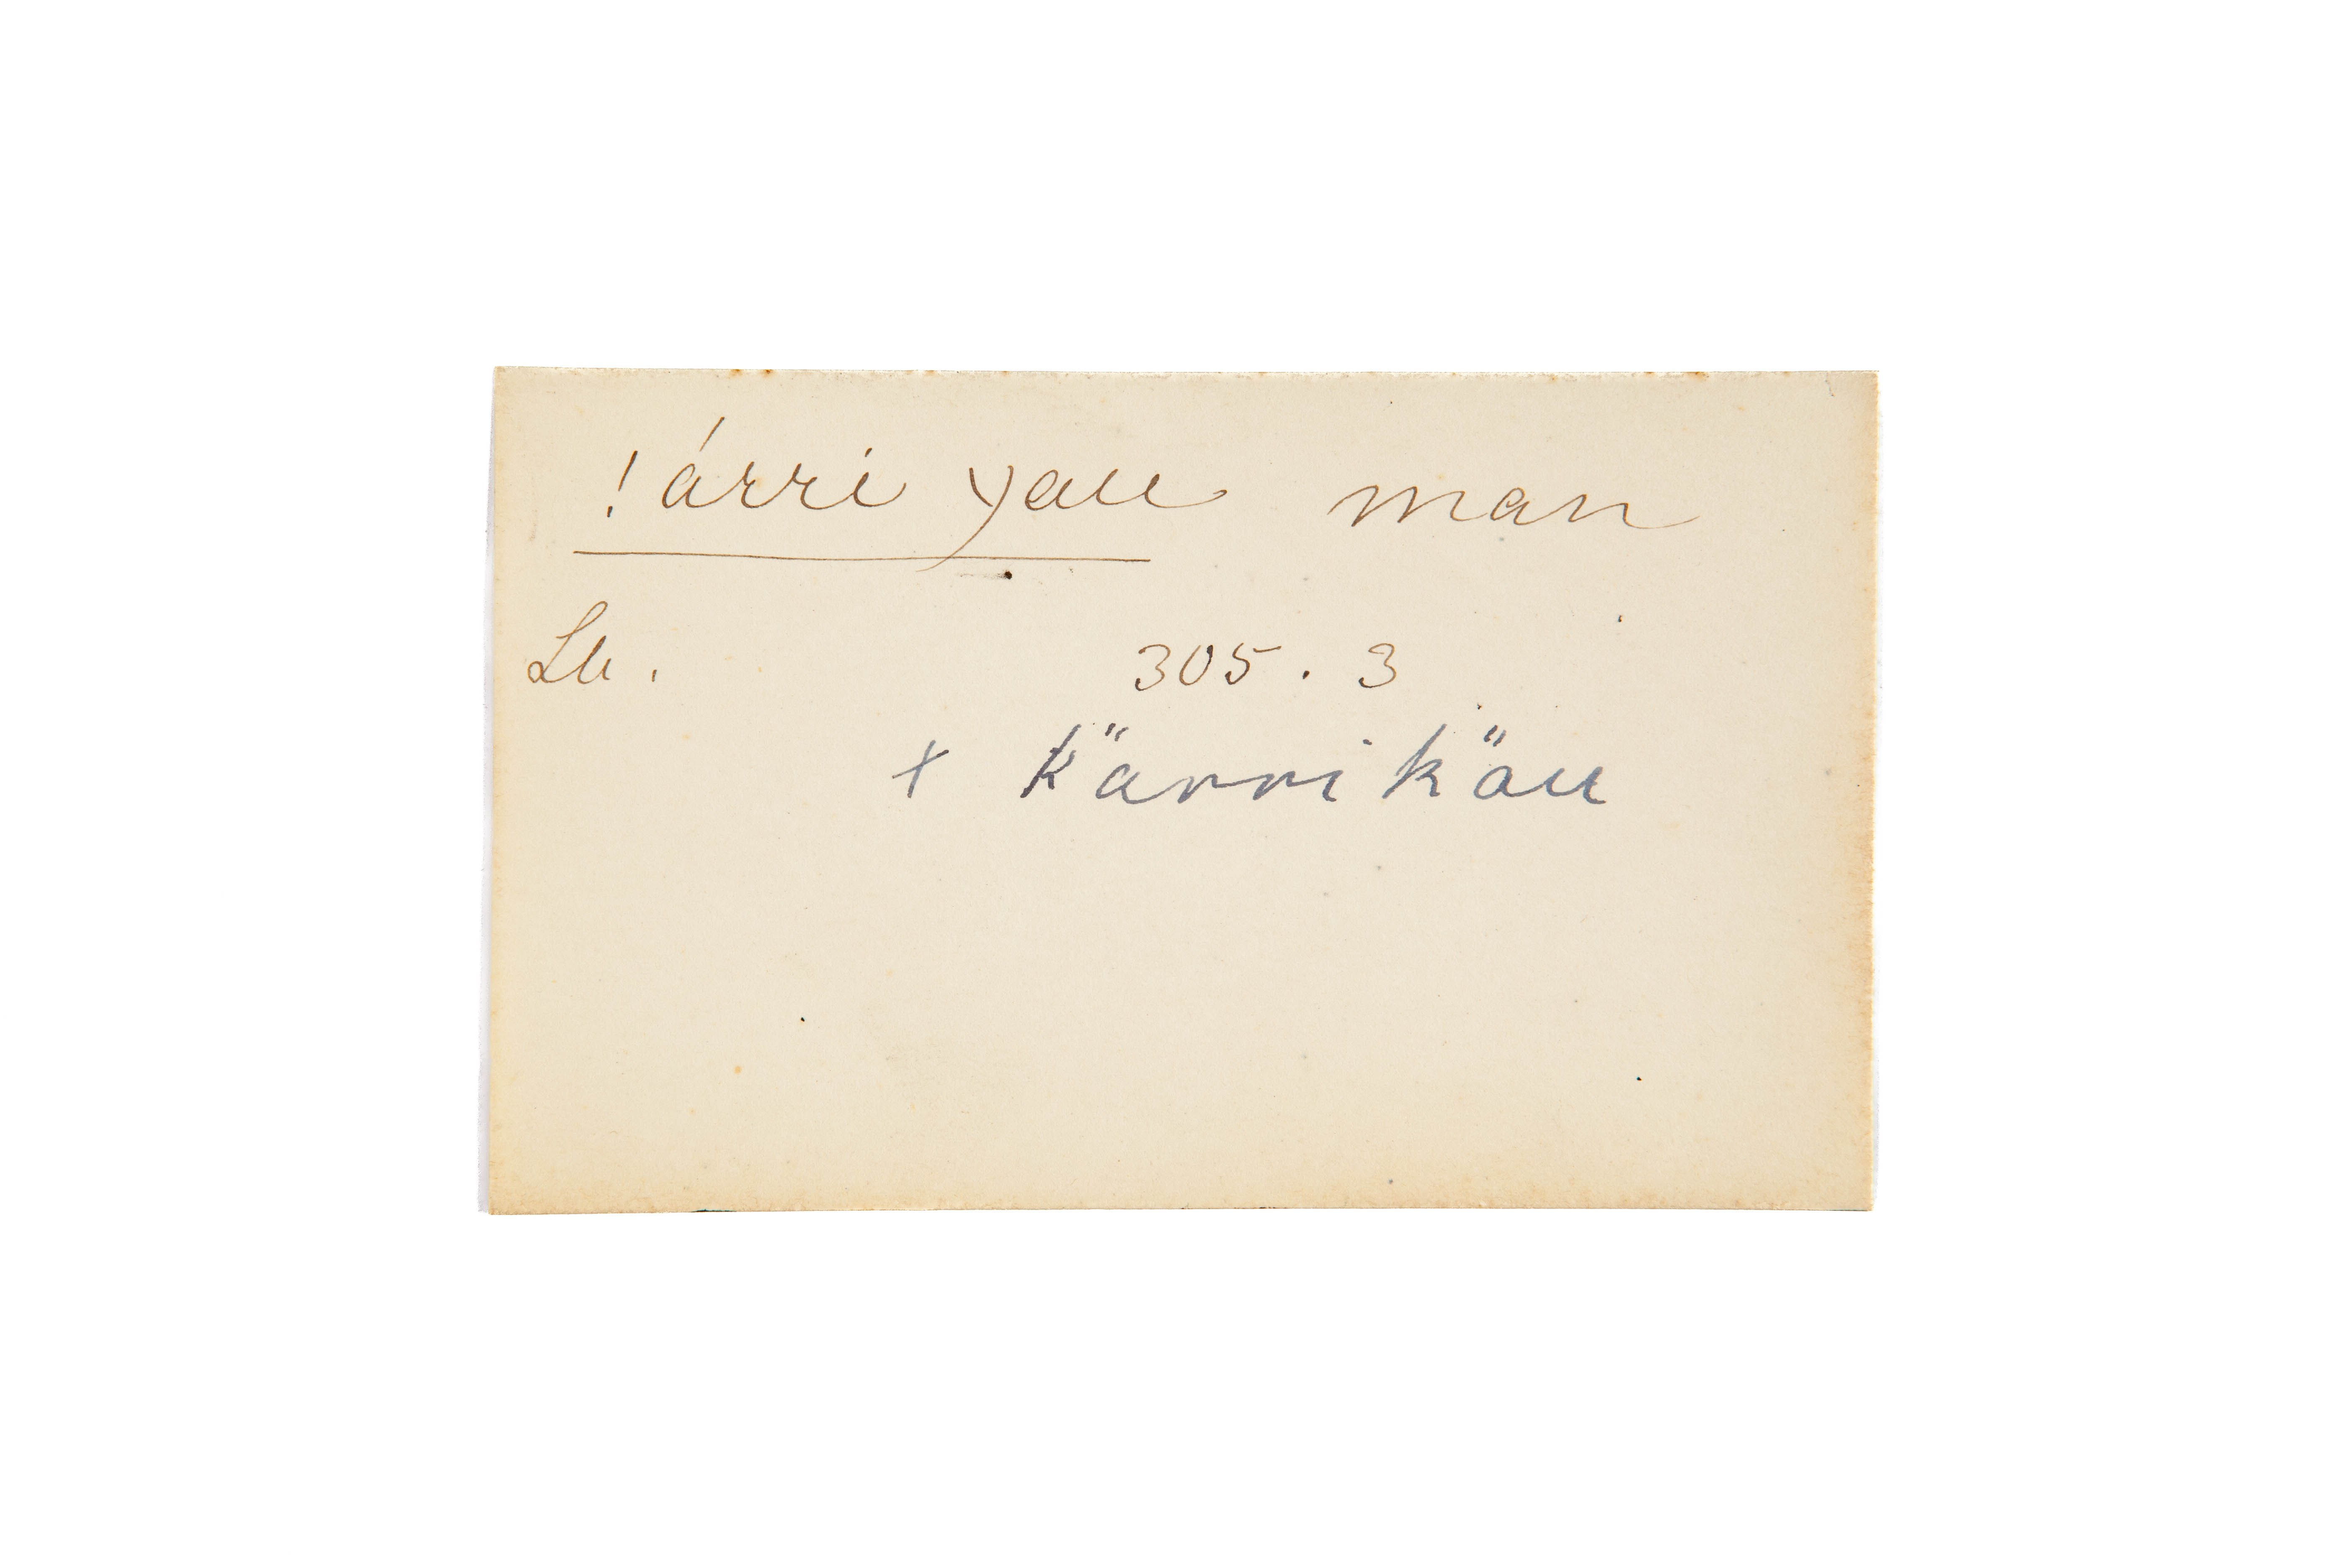 !árri yau man
Lu. 305. 3
+ Kärrikäu